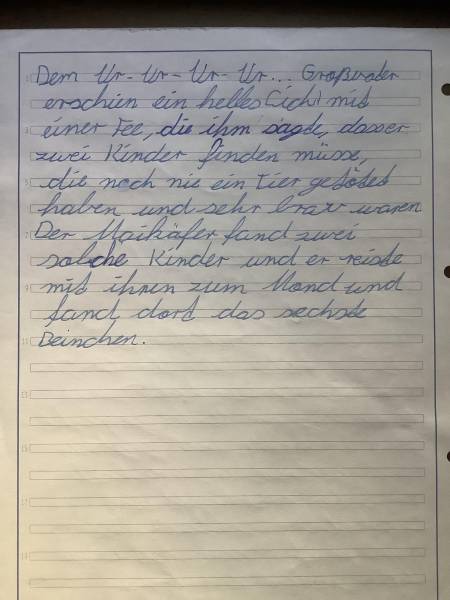 Dem Ur-Ur-Ur-Ur... Großvater
erschien ein helles Licht mit
einer Fee, die ihm sagte, dass er
zwei Kinder finden müsse,
die noch nie ein Tier getötet
haben und sehr brav waren.
Der Maikäfer fand zwei
solche Kinder und er reiste
mit ihnen zum Mond und
fand dort das sechste
Beinchen.